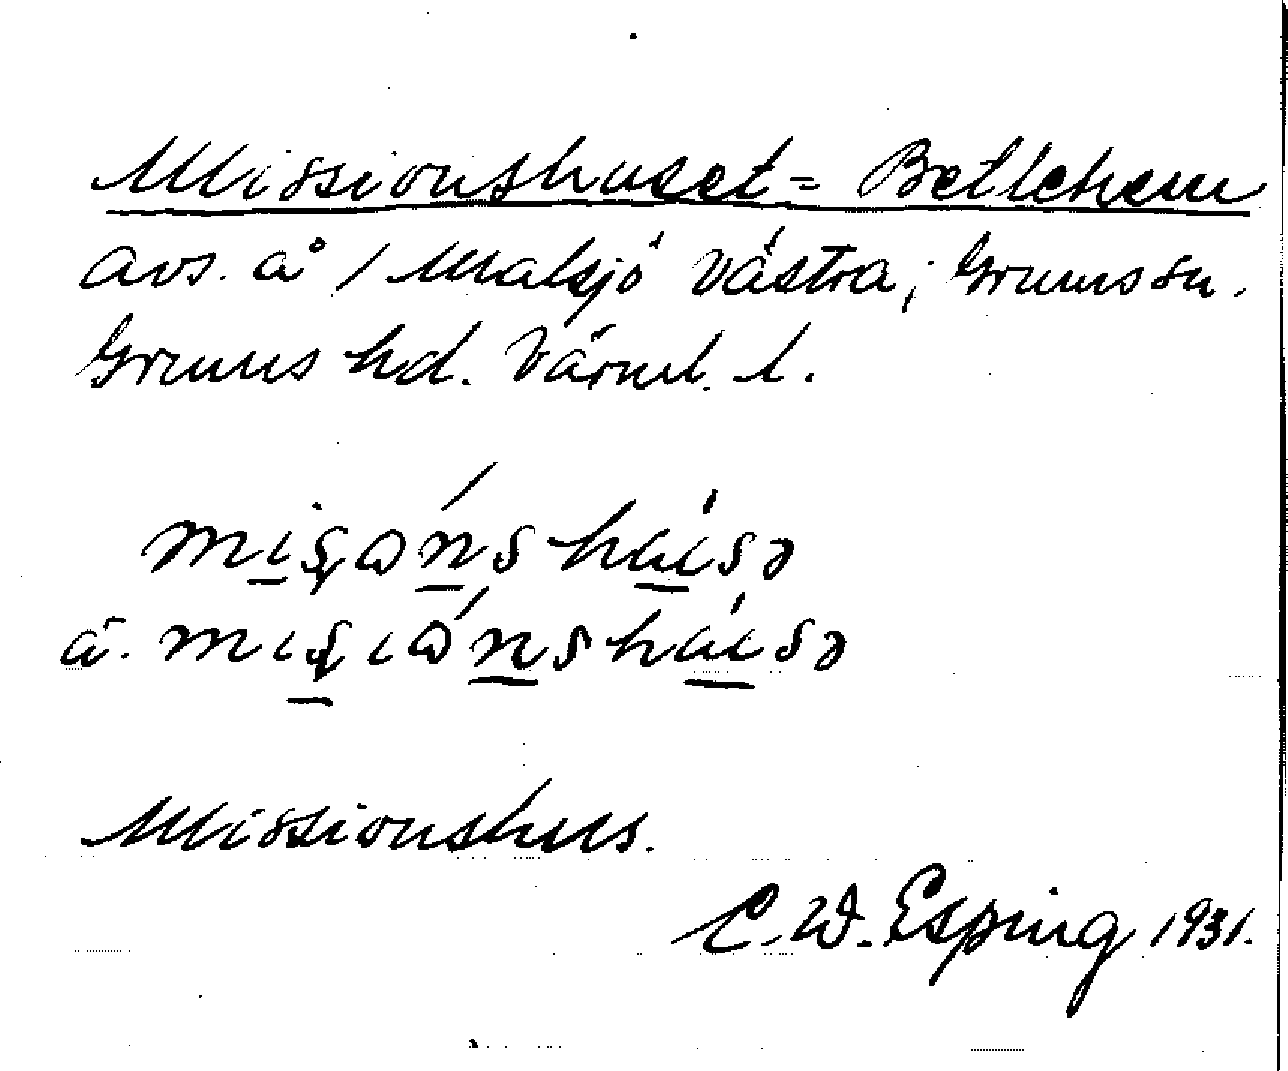 Missionshuset = Betlehem
avs. å / Malsjö västra, Grums sn.
Grums hd. Värml. l.
miṣɷńshúsə
ä. miṣiɷ́nshúsə
Missionshus.
C. W. Esping 1931.